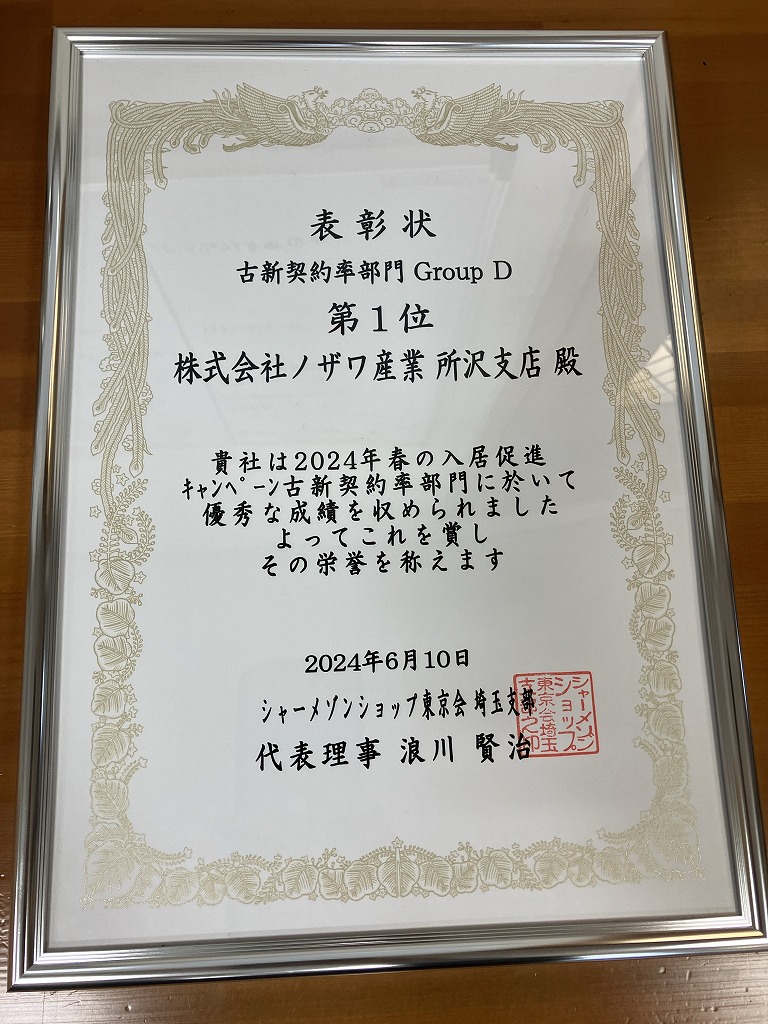 表彰状
古新契約率部門 Group D
第1位
株式会社ノザワ産業 所沢支店 殿
貴社は2024年春の入居促進
ｷｬﾝﾍﾟｰﾝ古新契約率部門に於いて
優秀な成績を収められました
よってこれを賞し
その栄誉を称えます
2024年6月10日
シャーメゾンショップ東京会 埼玉支部
代表理事 浪川 賢治
シャーメゾン
ショップ
東京会埼玉